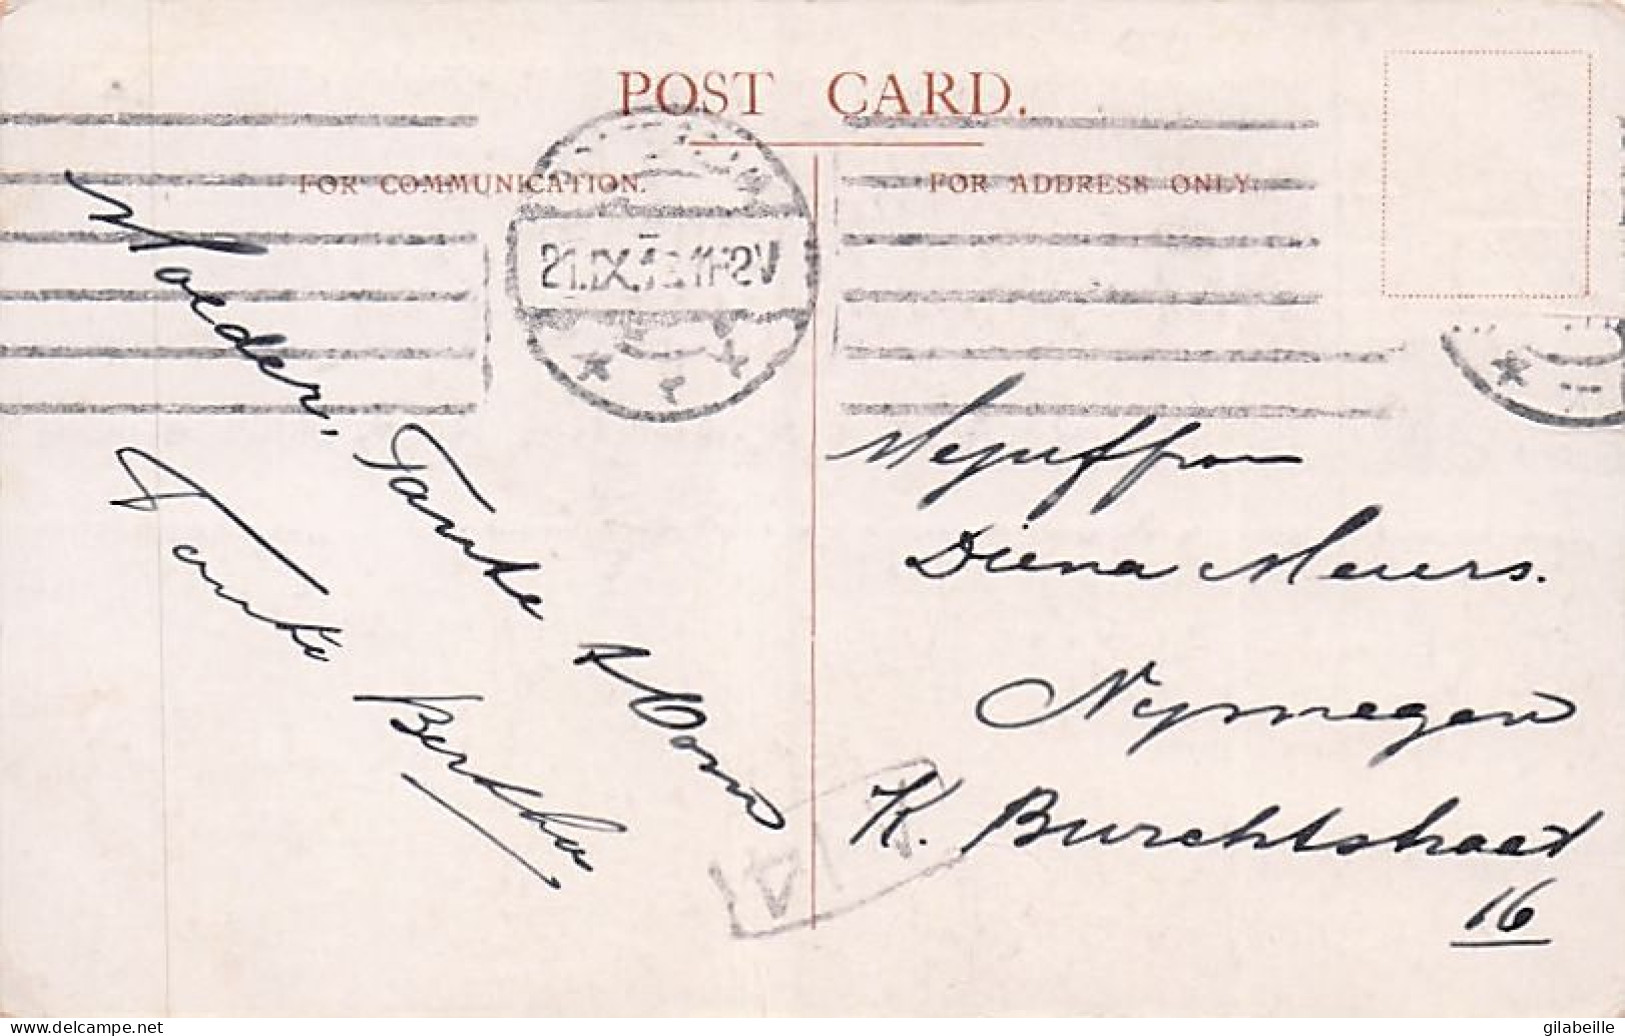 POST CARD.
FOR COMMUNICATION.
FOR ADDRESS ONLY.
21.IX
11-12V
Moeder, Tante
Tante Bertha
Mejuffrou
Diena Meurs.
Nijmegen
K. Burchtstraat
16
www.delcampe.net
gilabeille